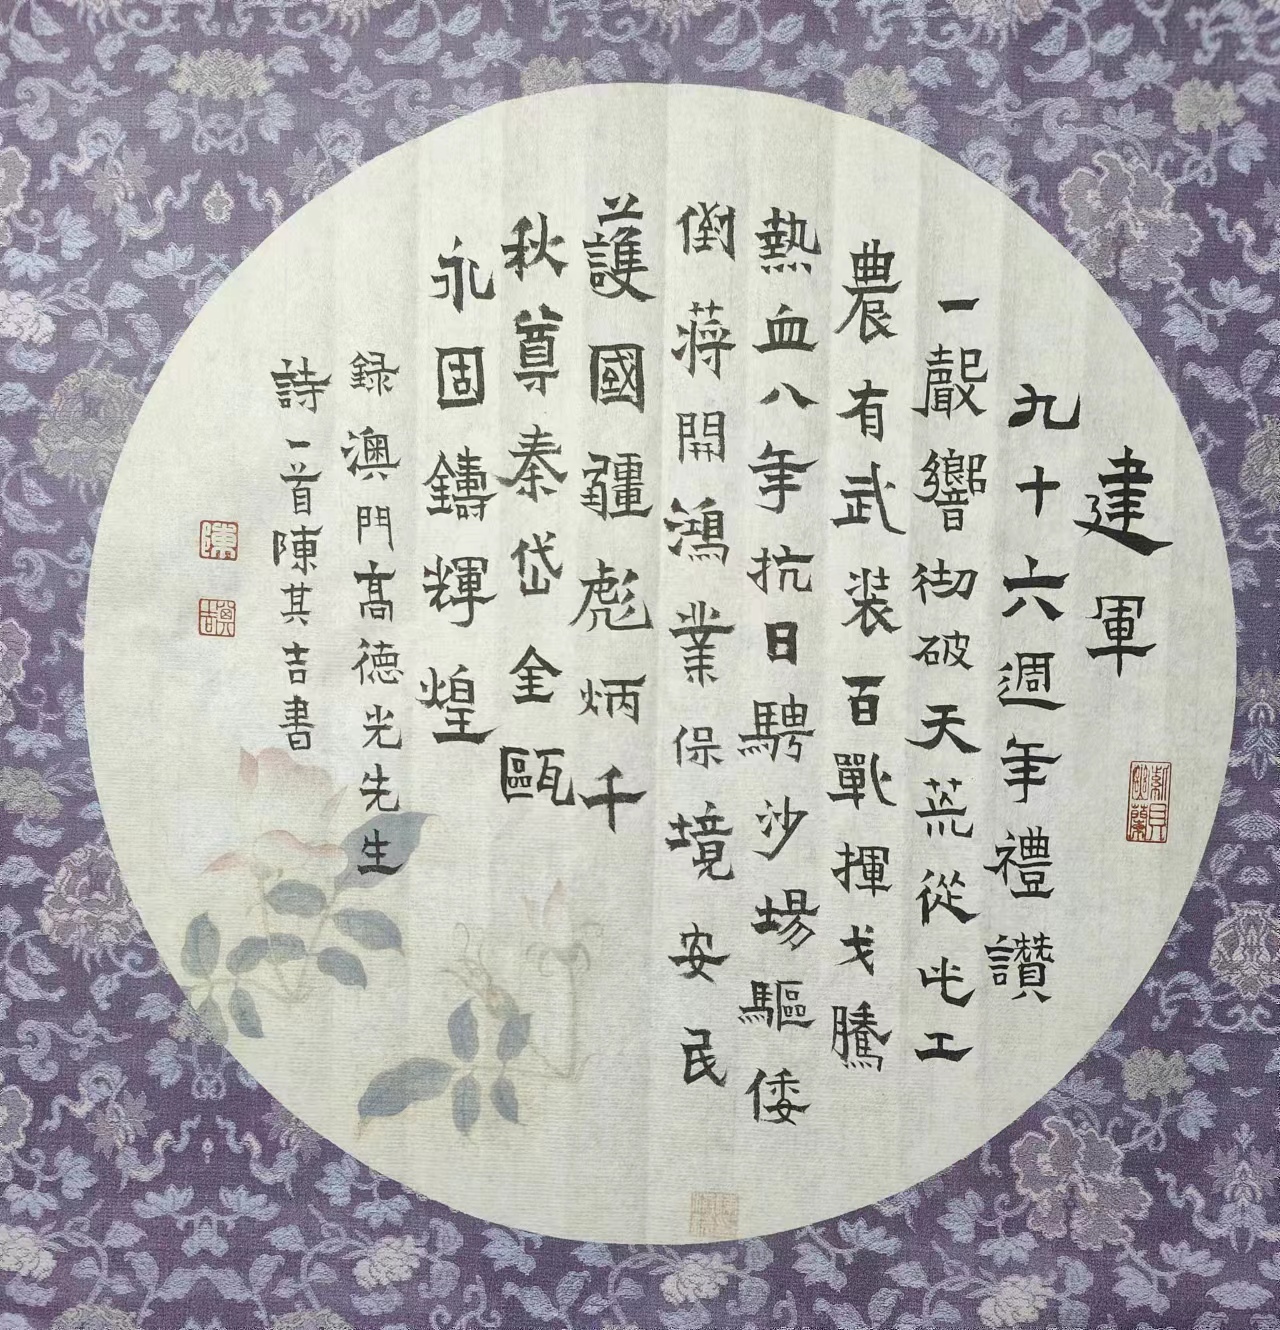 建軍
九十六週年禮讚
一聲響彻破天荒從此工
農有武裝百戰揮戈騰
熱血八年抗日騁沙場驅倭
倒蔣開鴻業保境安民
護國疆彪炳千
秋尊秦岱金甌
永固鑄輝煌
録澳門髙德光先生
詩一首陳其吉書
陳
其吉